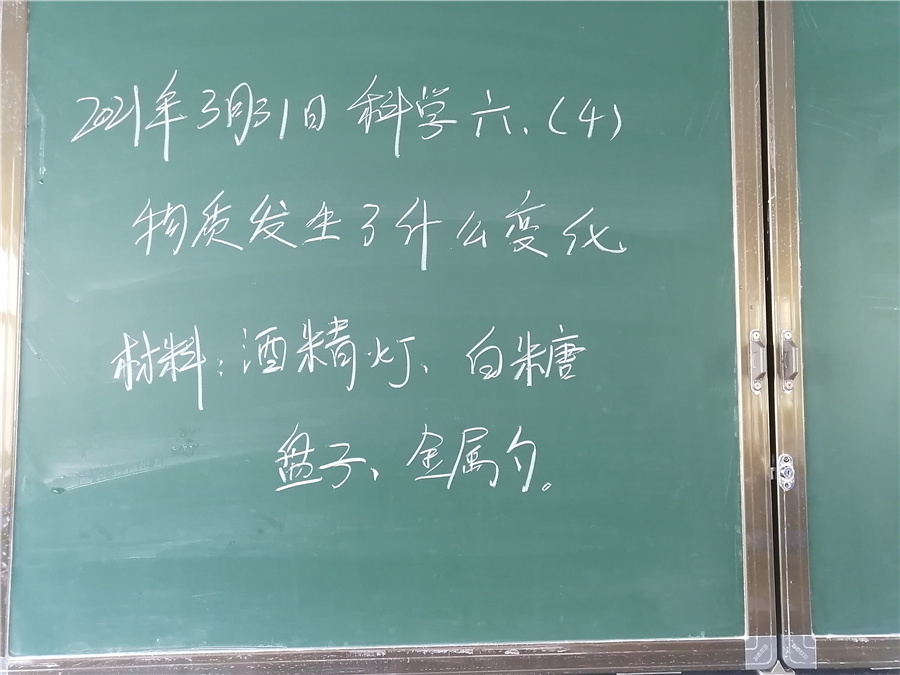 2021年3月31日 科学 六、(4)
物质发生了什么变化
材料:酒精灯、白糖
盘子、金属勺。